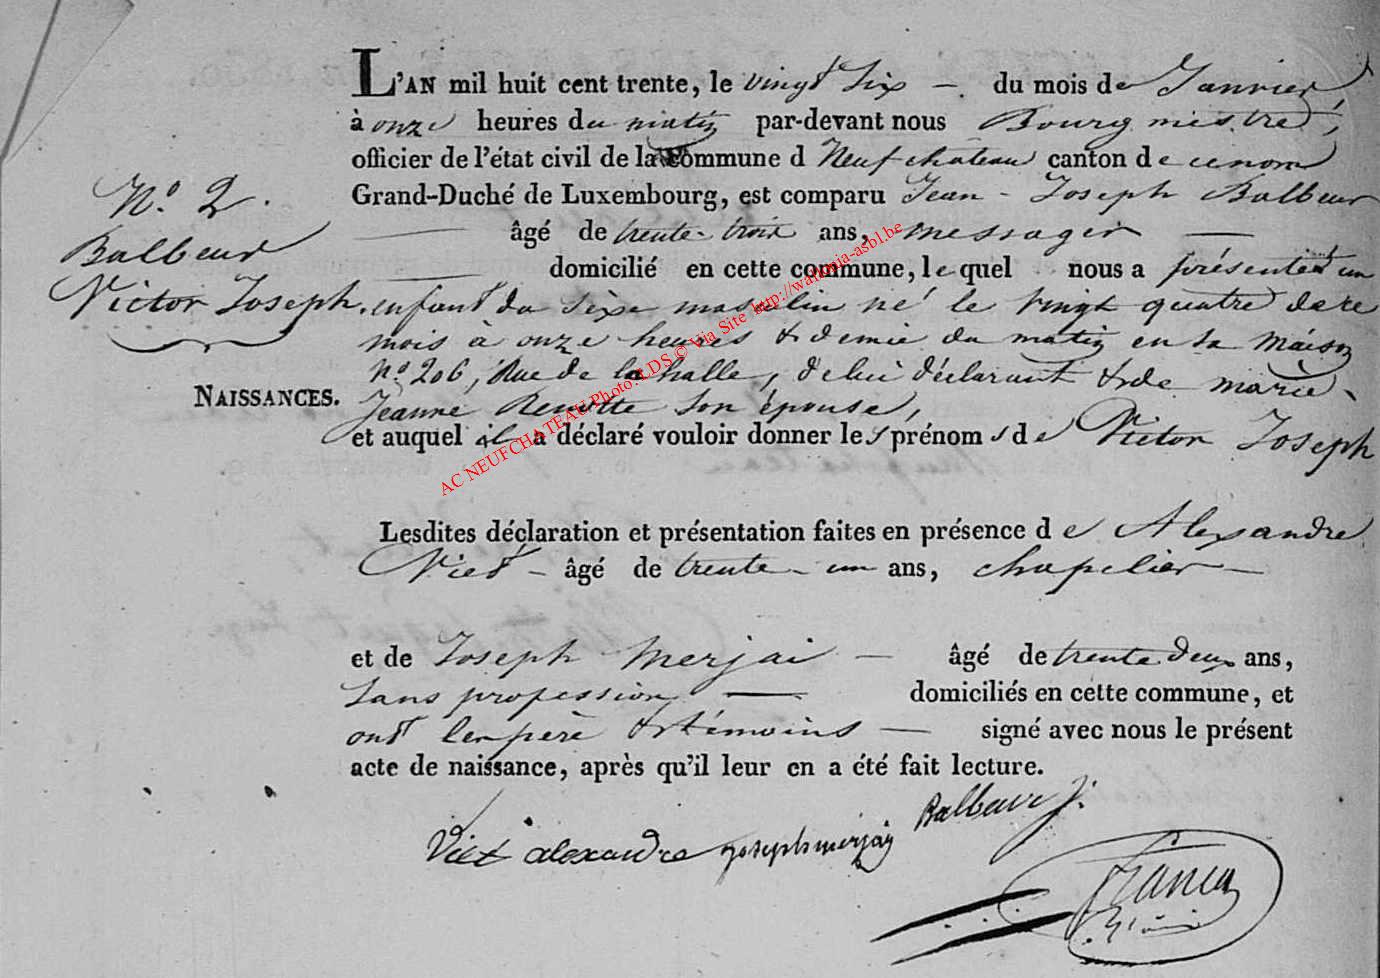 L'AN mil huit cent trente, le vingt six — du mois de Janvier
à onze heures du matin par-devant nous Bourgmestre,
officier de l'état civil de la Commune d Neufchâteau canton de ce nom
Grand-Duché de Luxembourg, est comparu Jean-Joseph Balbeur
— âgé de trente-trois ans, messager —
domicilié en cette commune, lequel nous a présenté un
enfant du sèxe masculin né le vingt quatre de ce
mois à onze heures & demie du matin en sa maison
No 206, Rue de la halle, de lui déclarant & de marie-
Jeanne son épouse,
et auquel il a déclaré vouloir donner les prénoms de Victor Joseph
No. 2.
Balbeur
Victor Joseph.
NAISSANCES.
Lesdites déclaration et présentation faites en présence de Alexandre
Viet — âgé de trente-un ans, chapelier —
et de Joseph Merjai — âgé de trente deux ans,
sans profession — domiciliés en cette commune, et
ont les père & témoins — signé avec nous le présent
acte de naissance, après qu'il leur en a été fait lecture.
Viet alexandre Joseph merjay Balbeur J.
AC NEUFCHATEAU Photo: LDS © Via Site http://wallonia-asbl.be